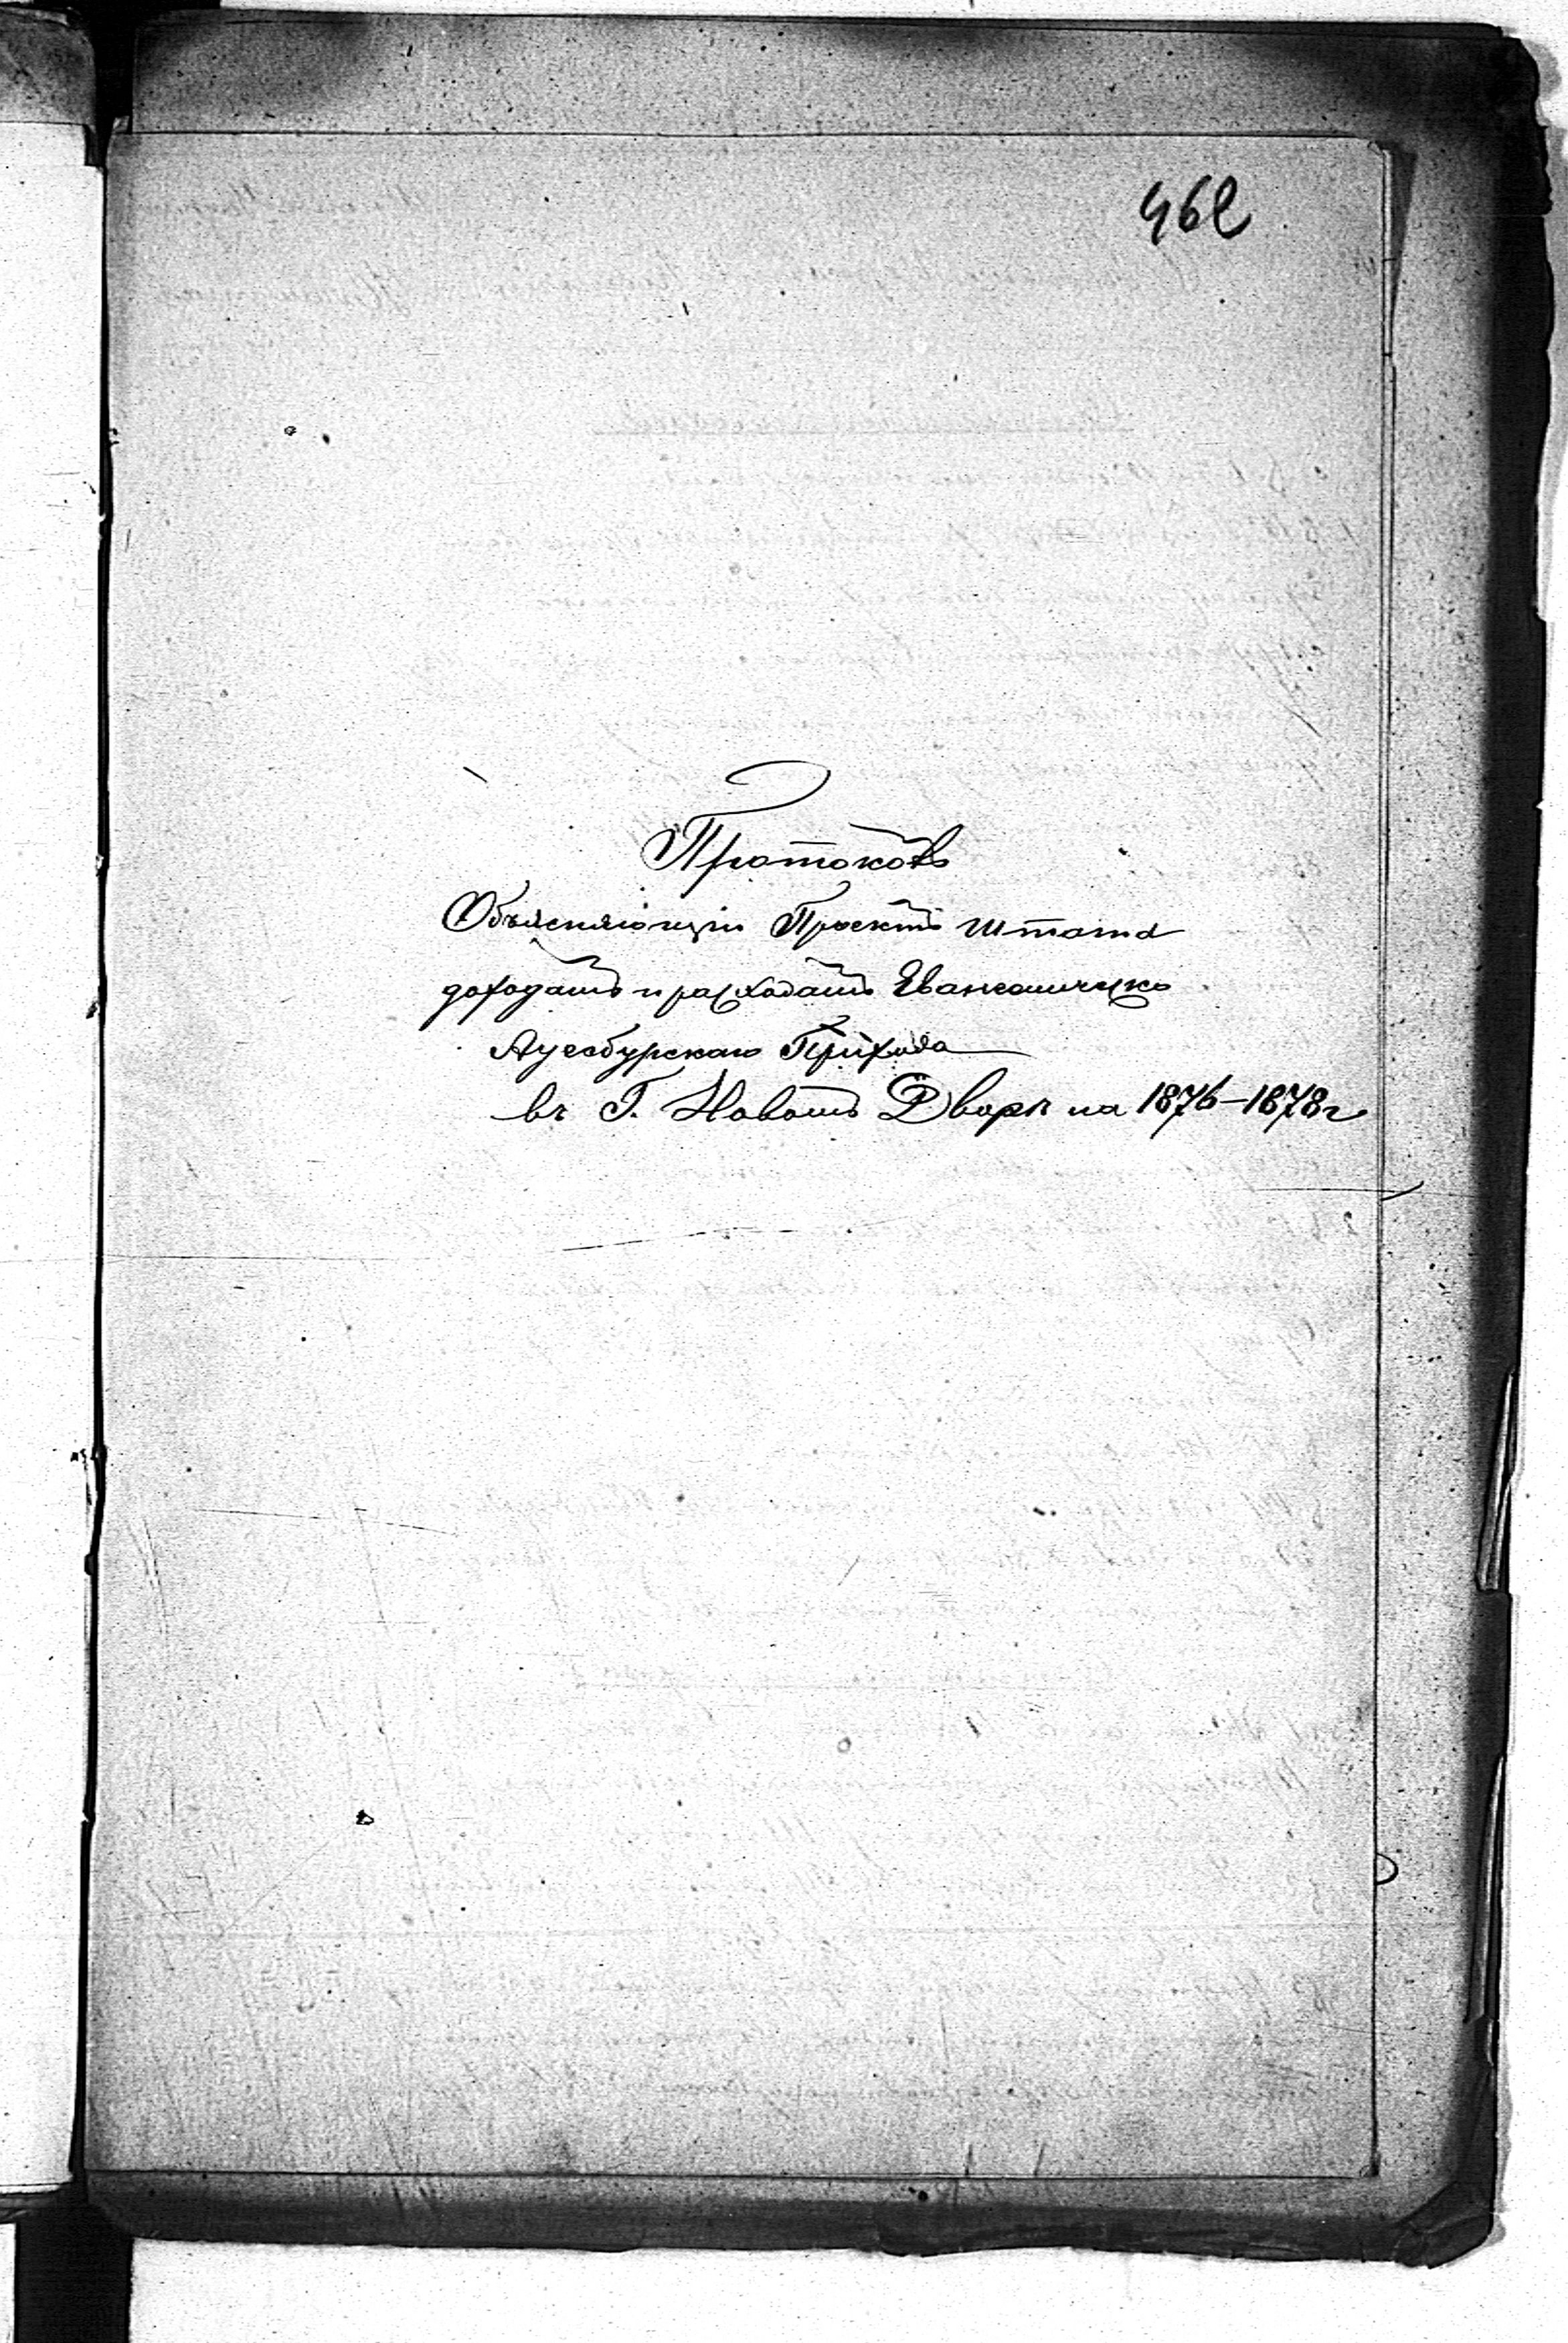 462
Протоколъ
Объясняющiй Проектъ штата
доходамъ и расходамъ Евангелическо
Аугсбурскаго Прихода
въ Г. Новомъ Дворѣ на 1876–1878 г